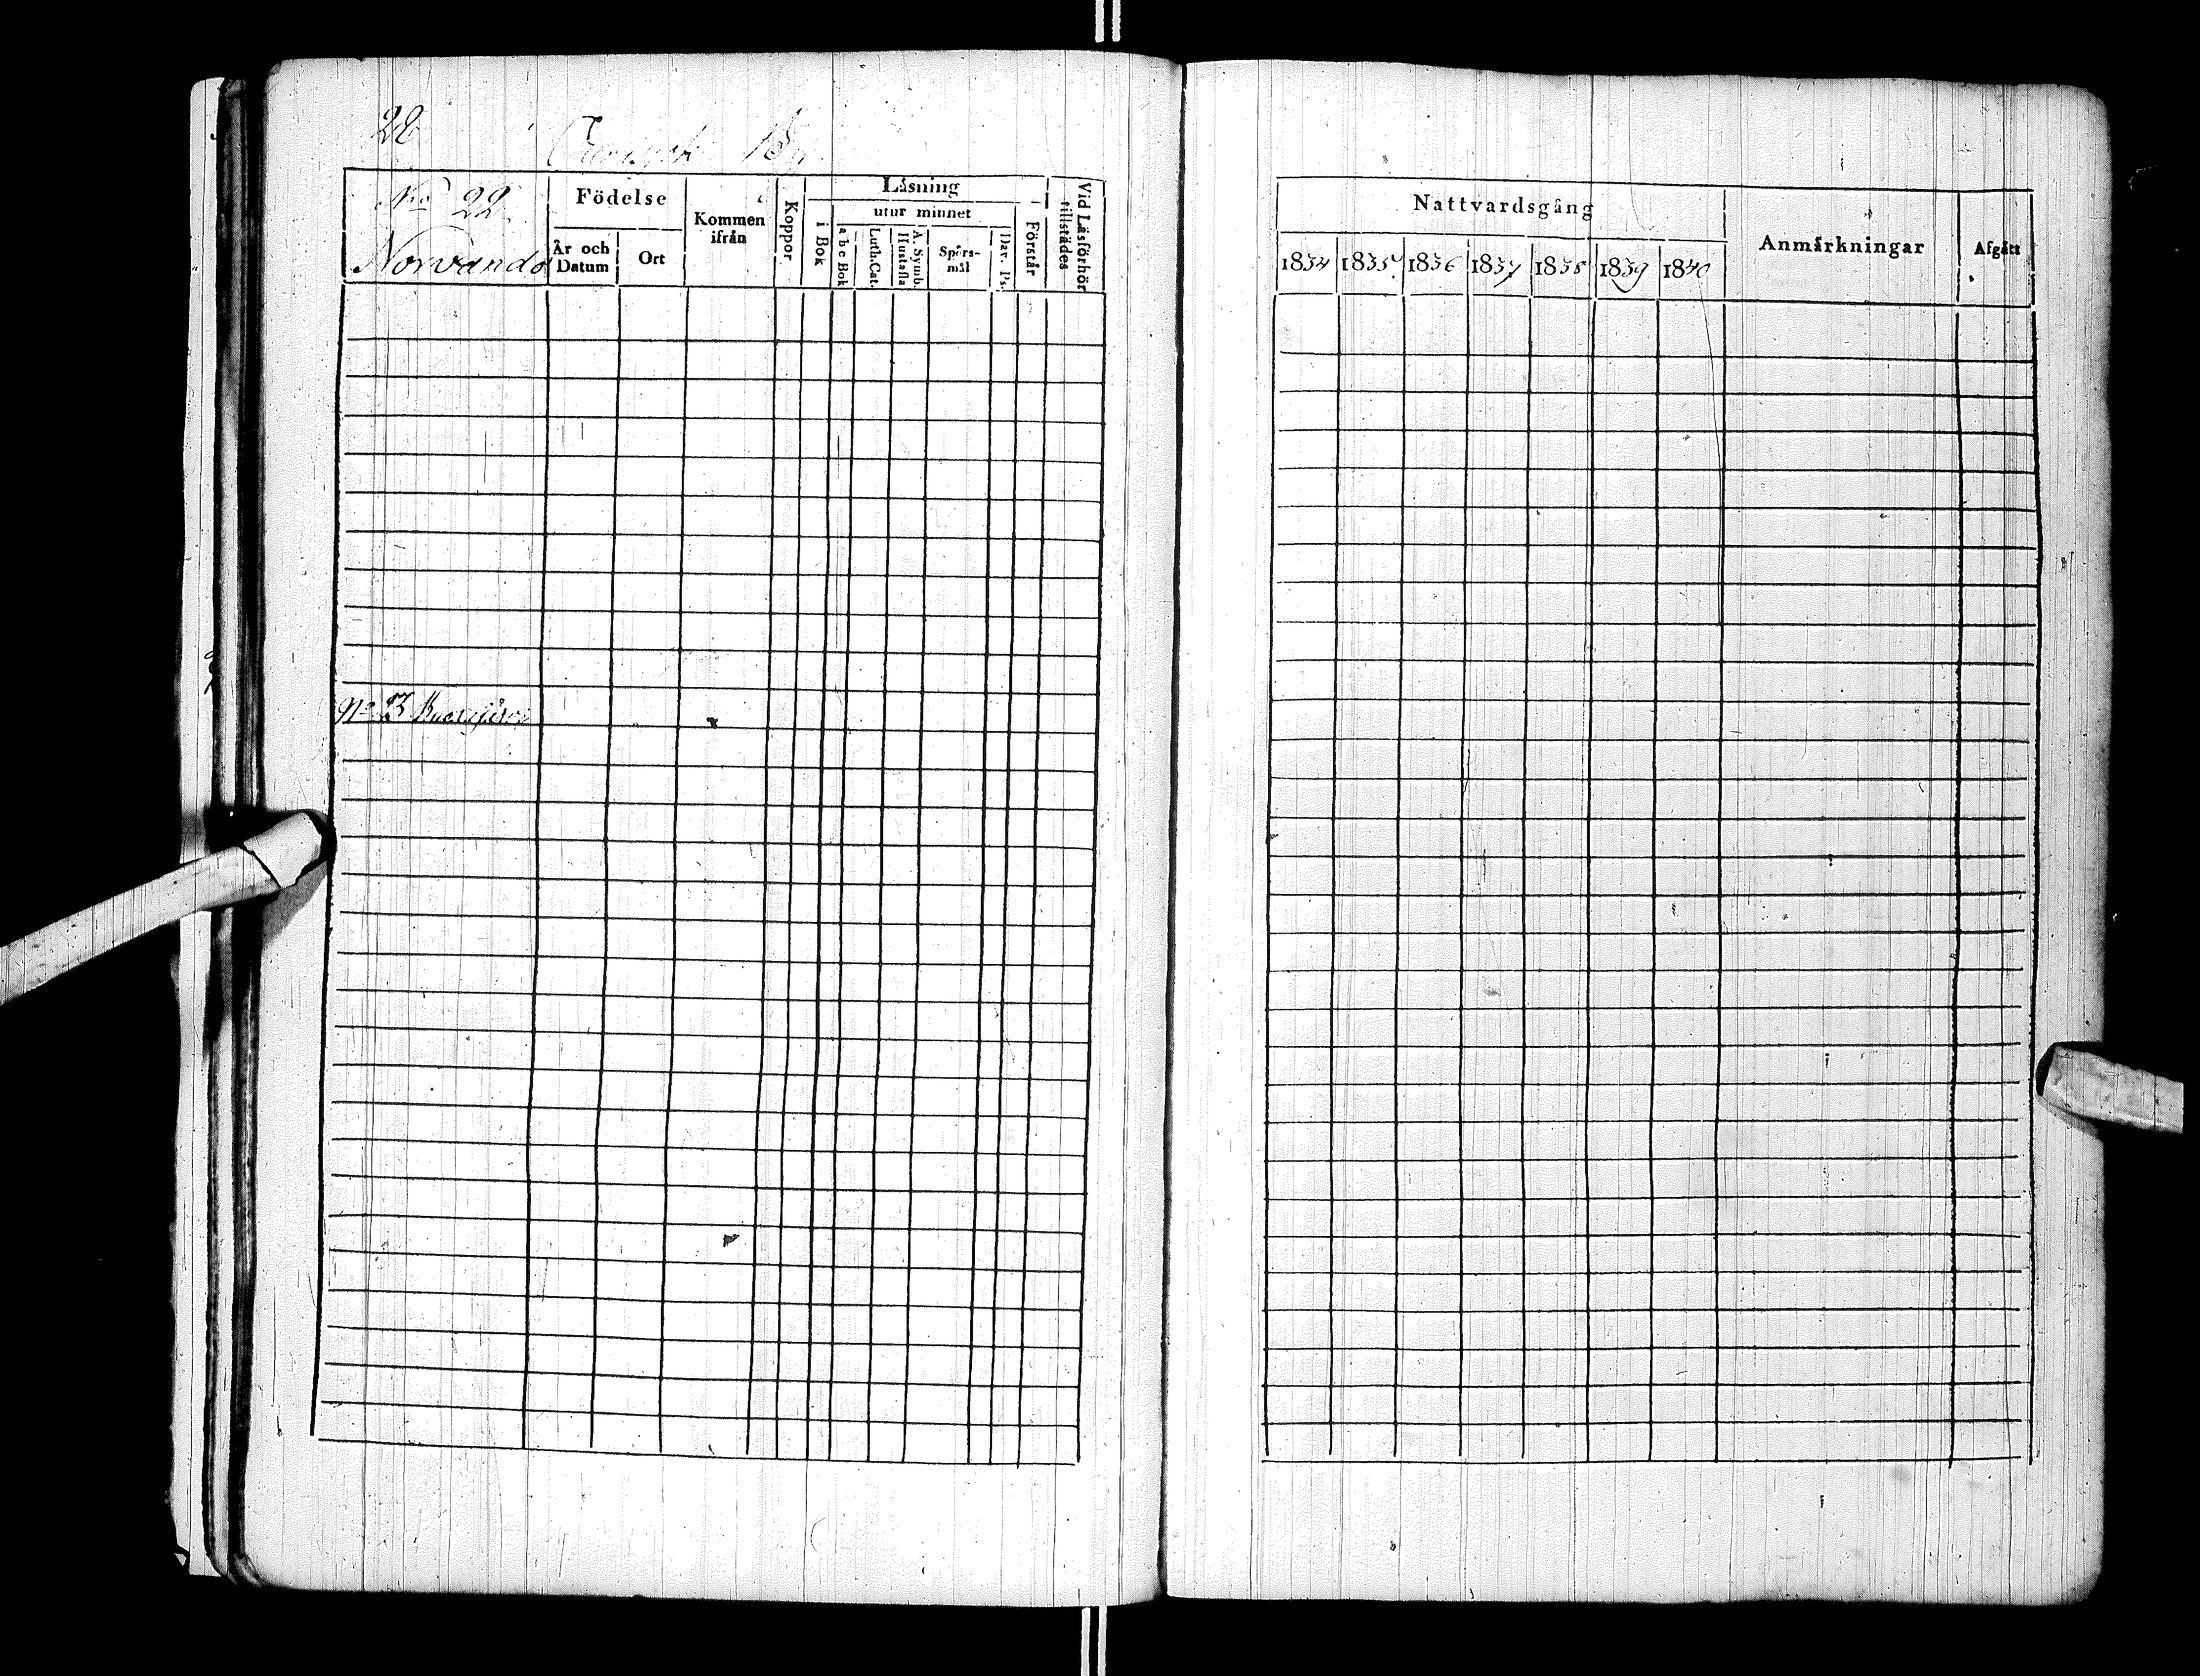 28
By
No 22
Norvando
Födelse
År och Datum
Ort
Kommen ifrån
Koppor
Läsning
i Bok
utur minnet
a b c Bok
Luth. Cat.
A. Symb. Hustafla
Spörs-mål
Dav. Ps.
Förstår
Vid Läsförhör tillstädes
No 3
Nattvardsgång
1834 1835 1836 1837 1838 1839 1840
Anmärkningar
Afgått